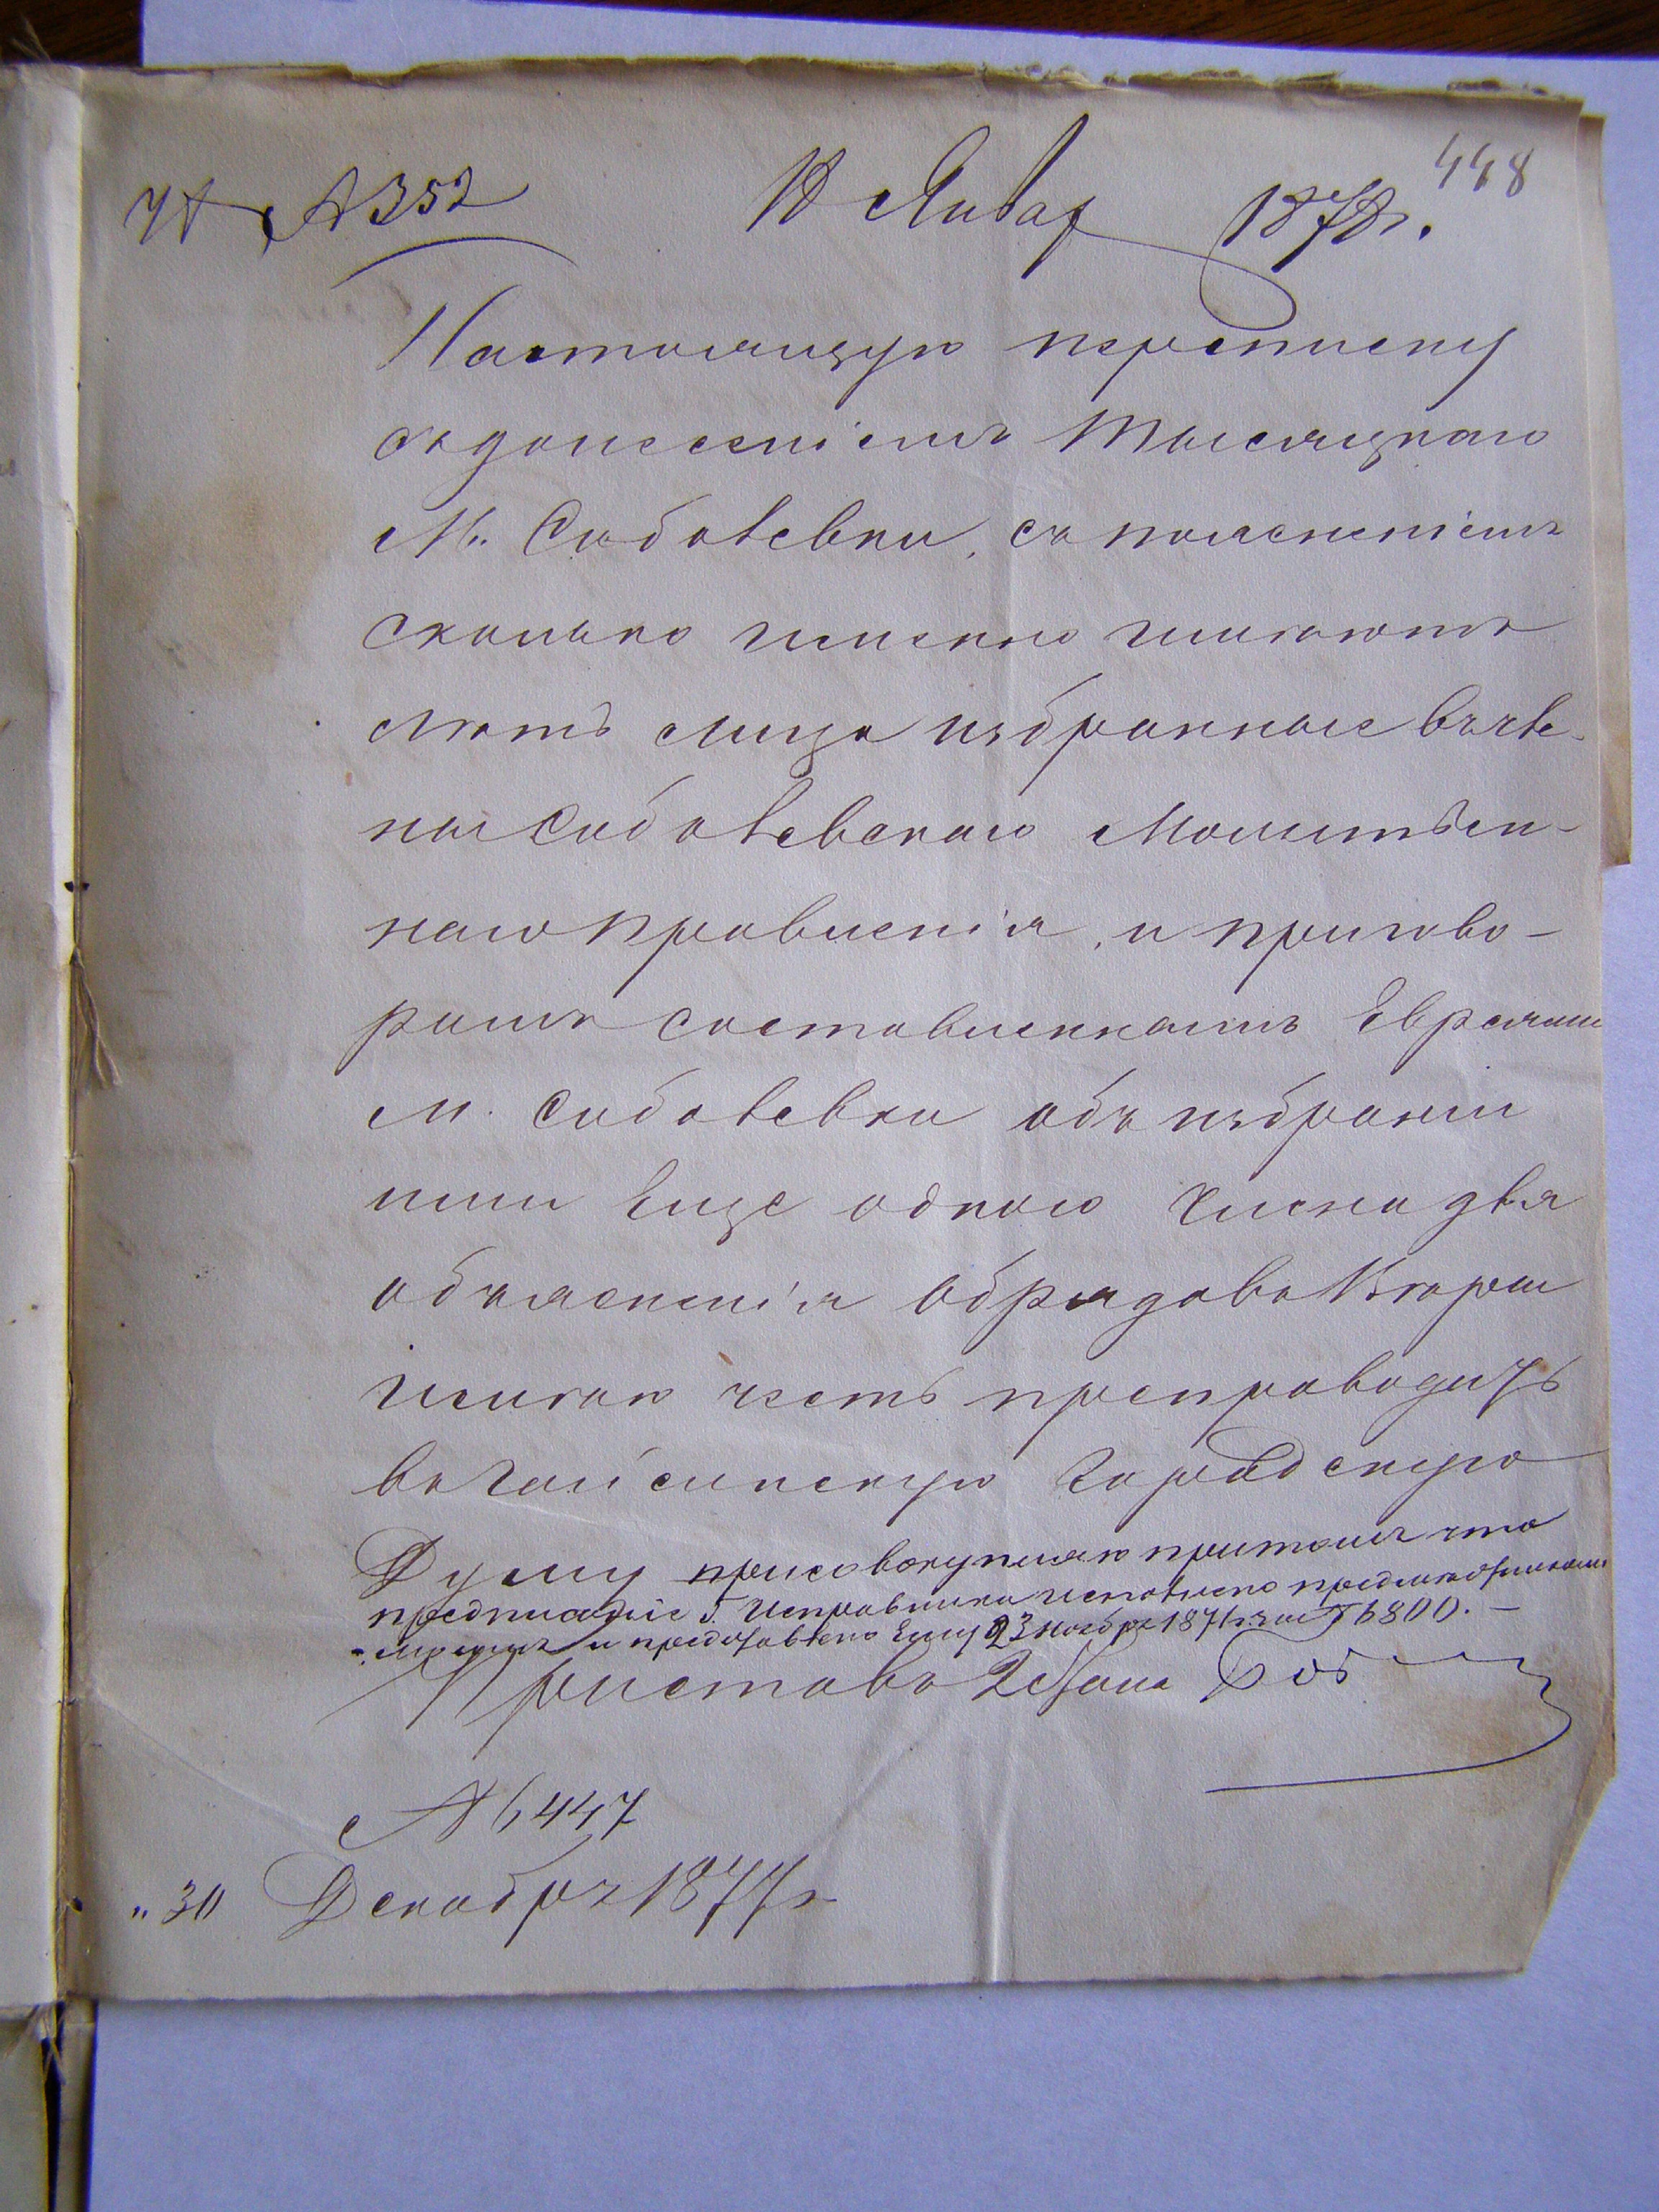 448
№ 352 10 Январ 1878 г.
Настоящую переписку
съ донесеніемъ Тысяцкаго
М. Соболевки, съ поясненіемъ
сколько именно имѣютъ
лѣтъ лица избранные въ чле-
ны Соболевскаго Молитвен-
наго правленія, и пригово-
ромъ составленнымъ Евреями
м. Соболевки объ избраніи
ими еще одного члена для
объясненія обрядовъ вѣры
имѣю честь препроводить
въ Гайсинскую Городскую
Думу присовокупляю притомъ что
предписаніе Г. Исправника исполнено предмѣстникомъ
моимъ и представлено ему 23 ноября 187 за № 6800. —
Приставъ 2 Стана
№ 6447
„30 Декабря 1877 г